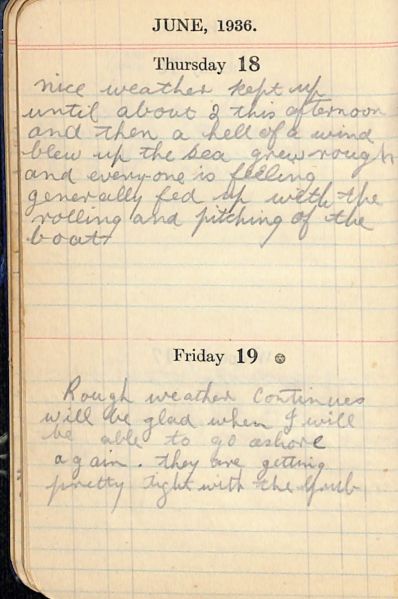 JUNE, 1936.
Thursday 18
nice weather kept up
until about 2 this afternoon
and then a hell of a wind
blew up the sea grew rough
and everyone is feeling
generally fed up with the
rolling and pitching of the
boat
Friday 19
Rough weather continues
will be glad when I will
be able to go ashore
again. they are getting
pretty tight with the grub